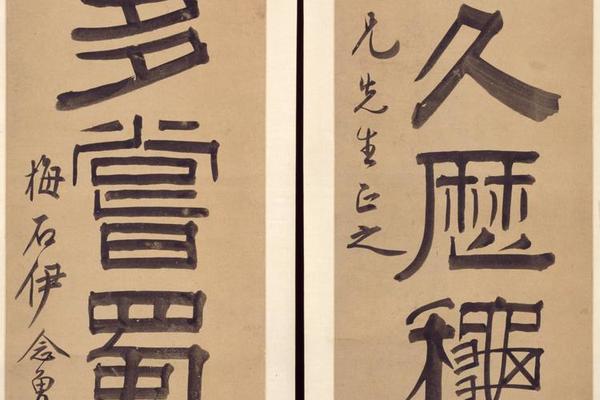 久歷龝
兄先生正之
多嘗蜀
梅石伊念曾